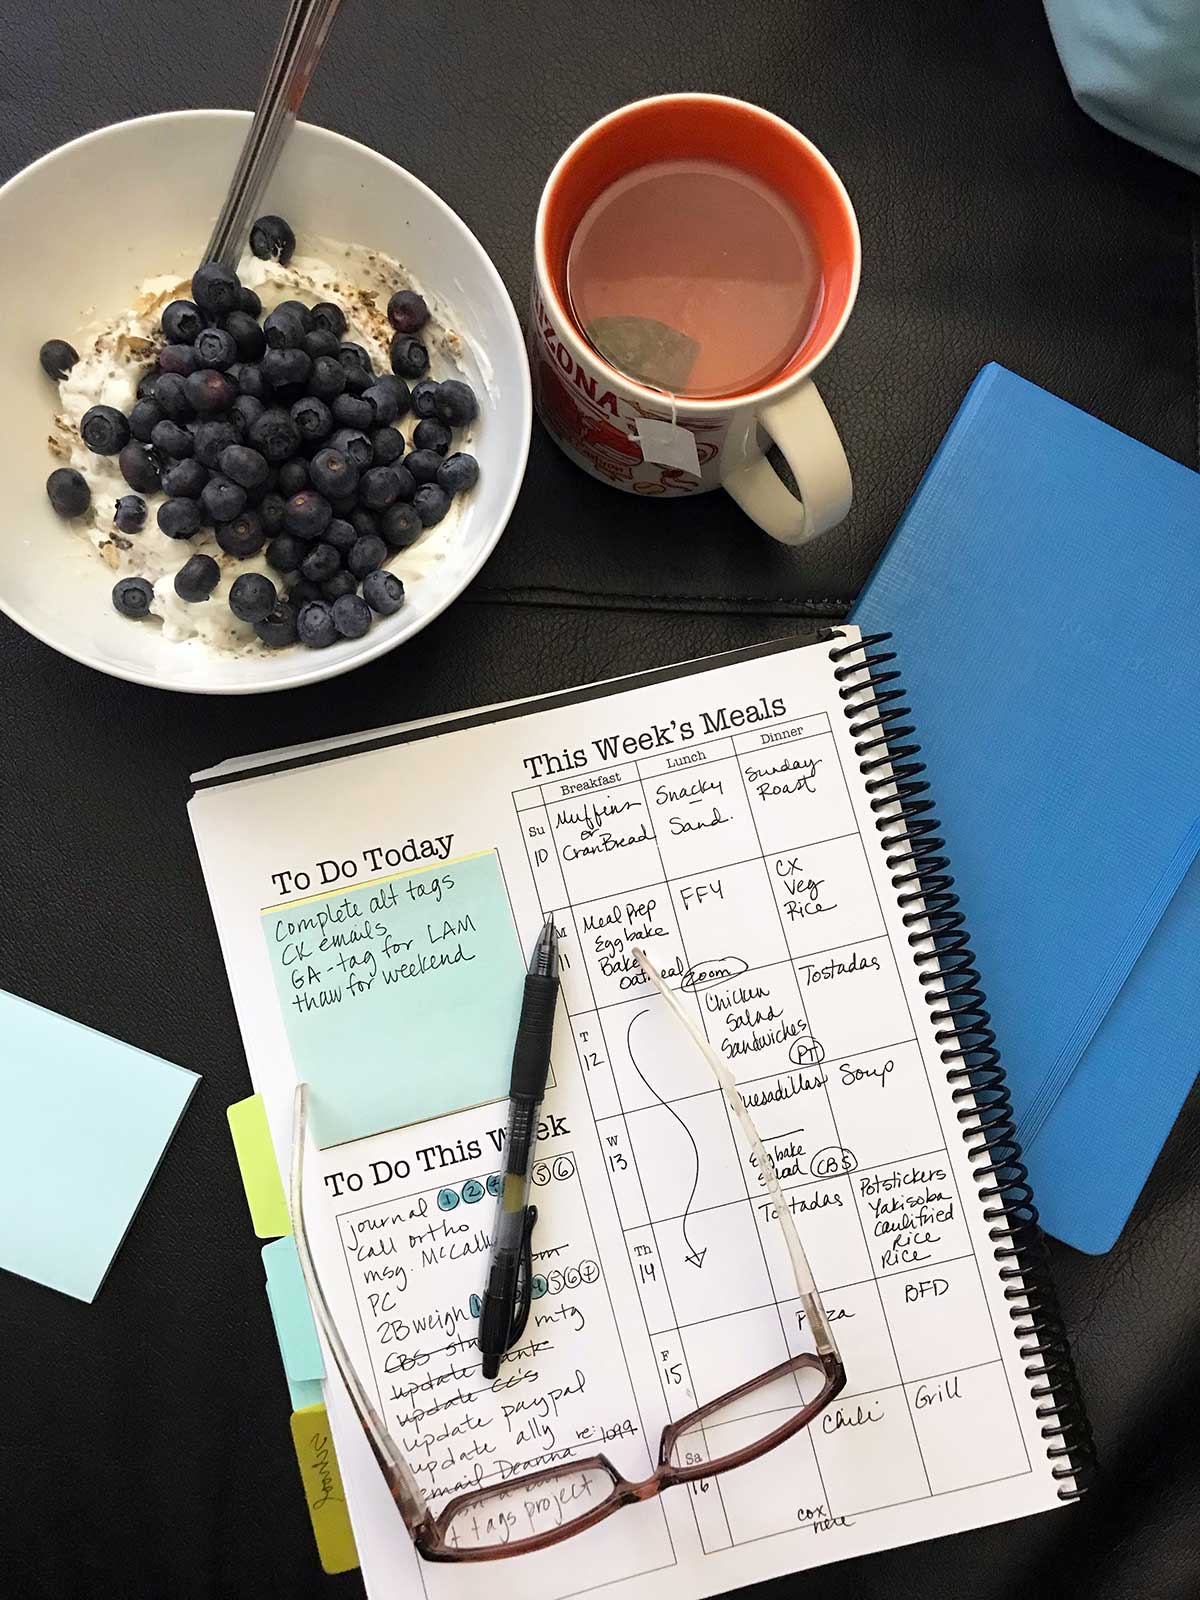 IZONA
This Week's Meals
Breakfast
Lunch
Dinner
Su
10
Muffins
or
CranBread
Snacky
Sand.
Sunday
Roast
M
11
Meal Prep
Egg bake
Bake
Oatmeal
FFY
CX
Veg
Rice
T
12
zoom
Chicken
Salad
Sandwiches
PT
Tostadas
W
13
Quesadillas
Egg bake
Salad
CBS
Soup
Th
14
Tostadas
Potstickers
Yakisoba
Caulifried
Rice
Rice
F
15
Pizza
BFD
Sa
16
Chili
Grill
cox
here
To Do Today
Complete alt tags
CK emails
GA-tag for LAM
thaw for weekend
To Do This Week
journal 1 2 5 6
call ortho
msg. McCall
PC
2B weigh 4 5 6 7
CBS mtg
update bank
update CC's
update paypal
update ally
email Deanna re: 1099
tags project